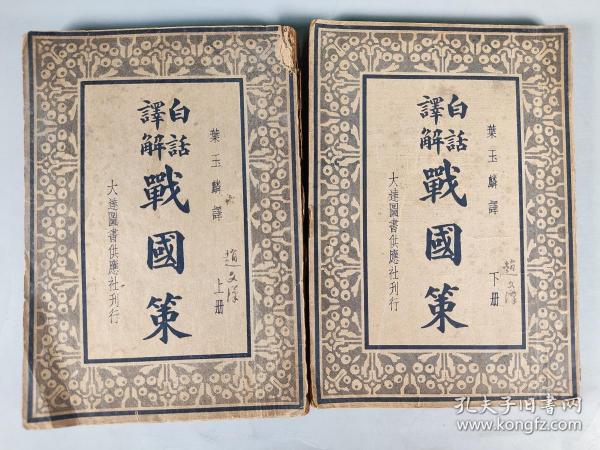 白話
譯解
戰國策
葉玉麟譯
上册
大達圖書供應社刊行
白話
譯解
戰國策
葉玉麟譯
下册
大達圖書供應社刊行
孔夫子旧书网
www.kongfz.com